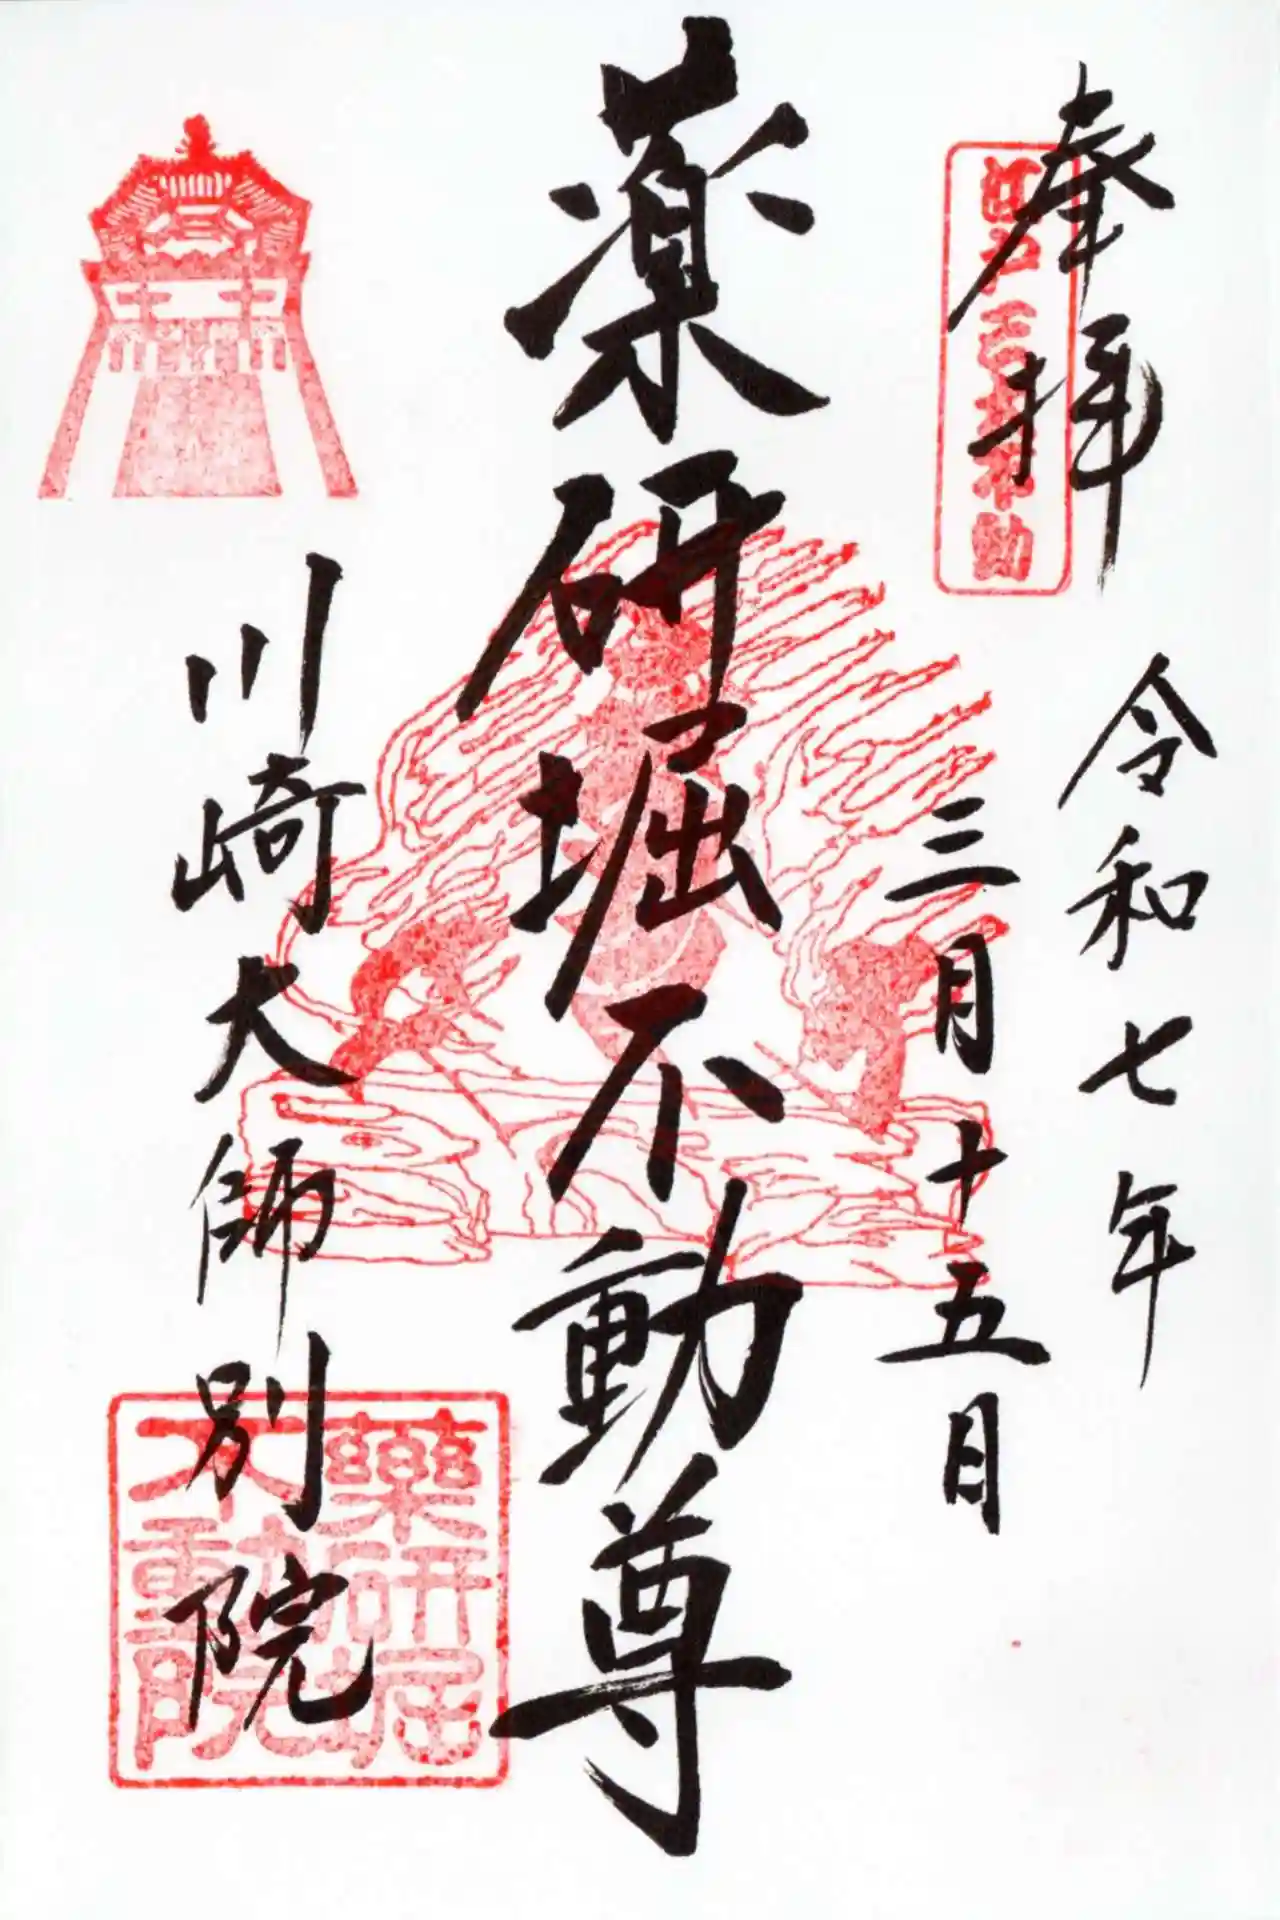 奉拝
江戸三大不動
令和七年
三月十五日
薬研堀不動尊
川崎大師別院
藥研堀
不動院